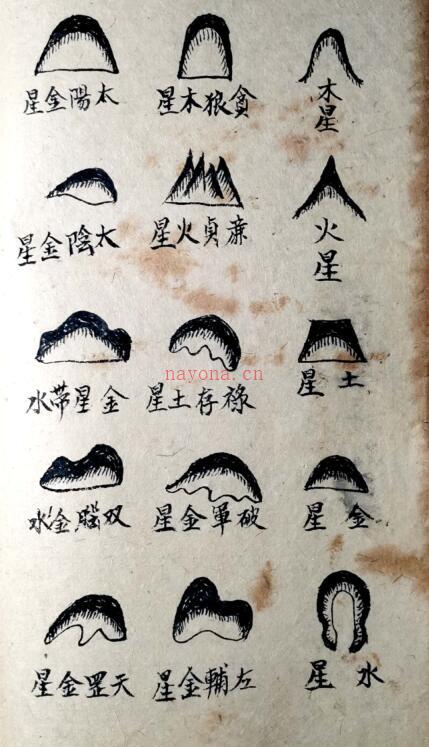 木星
火星
土星
金星
水星
貪狼木星
廉貞火星
祿存土星
破軍金星
左輔金星
太陽金星
太陰金星
金星帶水
双腦金水
天罡金星
nayona.cn